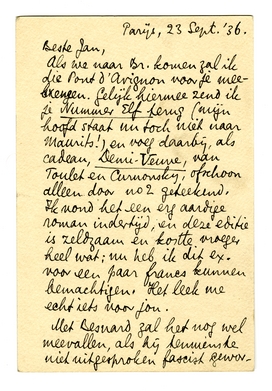 Parijs, 23 Sept. '36.
Beste Jan,
Als we naar Br. komen zal ik
die Pont d'Avignon voor je mee-
brengen. Gelijk hiermee zend ik
je Nummer Elf terug (mijn
hoofd staat nu toch niet naar
Maurits!) en voeg daarbij, als
cadeau, Demi-Veuve, van
Toulet en Curnonsky, ofschoon
alleen door no 2 geteekend.
Ik vond het een erg aardige
roman indertijd, en deze editie
is zeldzaam en kostte vroeger
heel wat; nu heb ik dit ex.
voor een paar francs kunnen
bemachtigen. Het leek me
echt iets voor jou.
Met Besnard zal het nog wel
meevallen, als hij tenminste
niet uitgesproken fascist gewor-